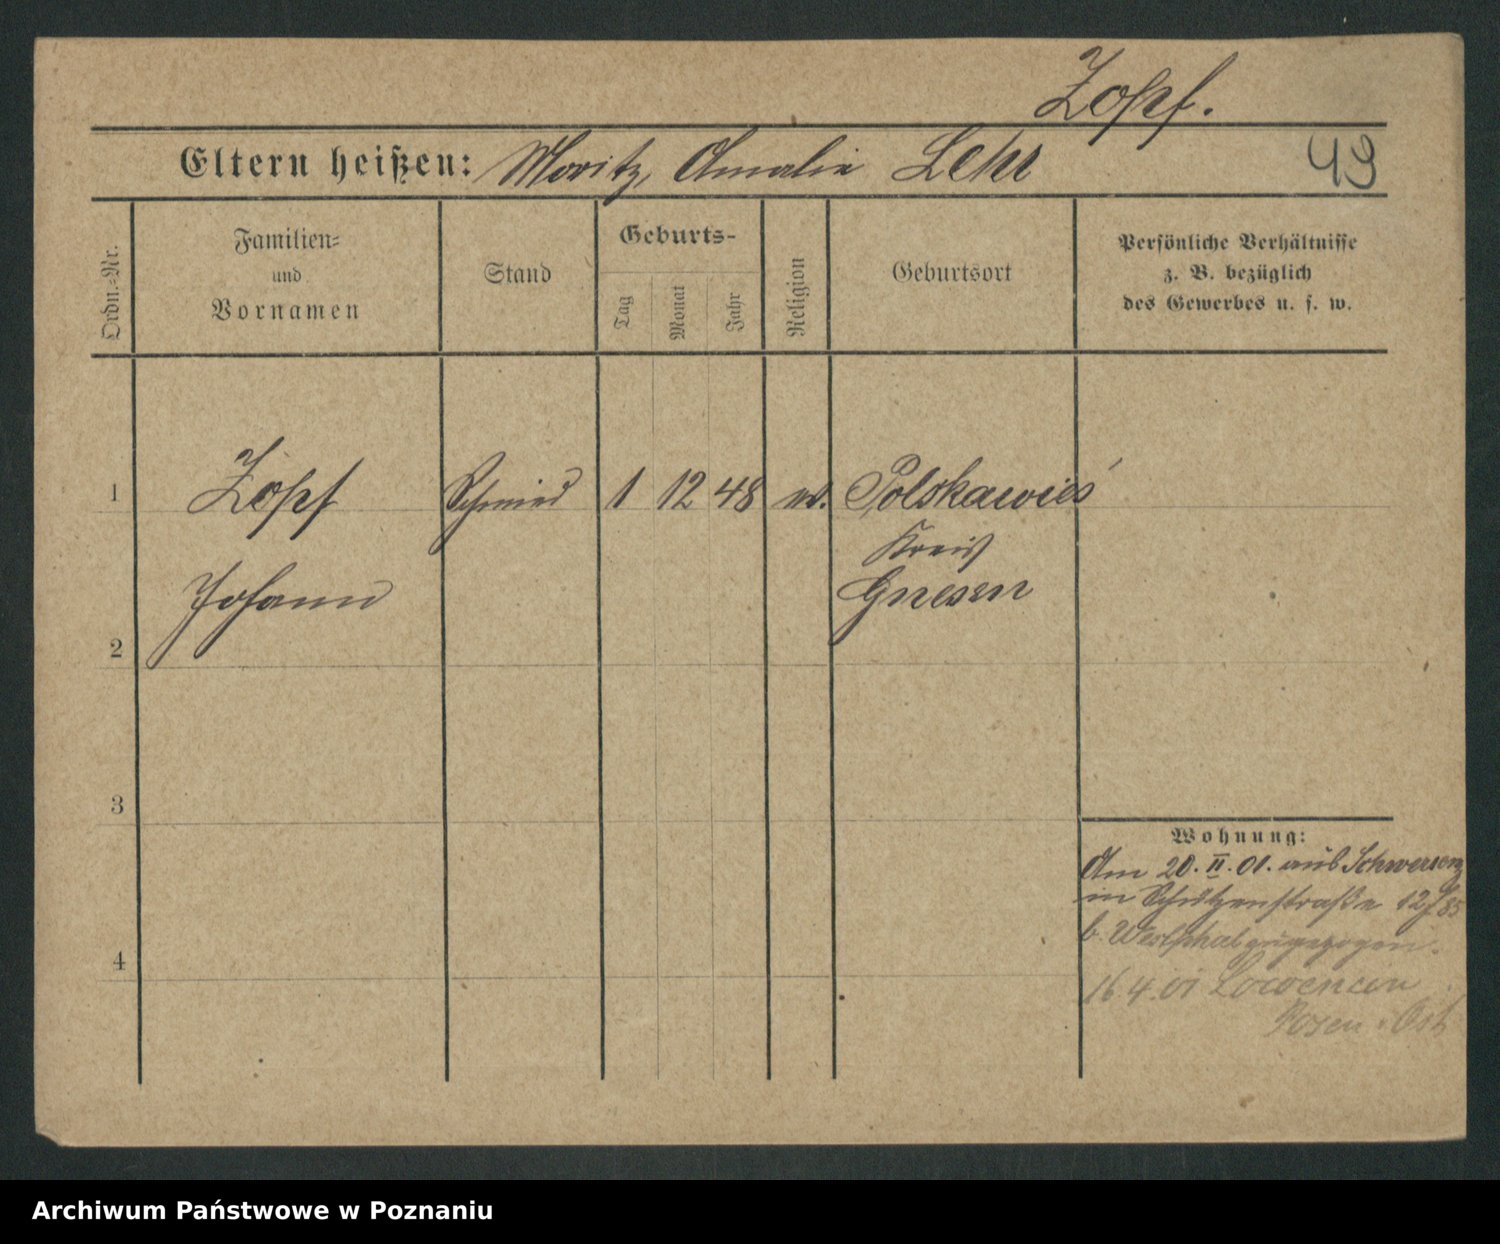 Zopf.
Eltern heißen: Moritz, Amalie Lehr
49
Ordn.=Nr.
Familien=
und
Vornamen
Stand
Geburts-
Tag
Monat
Jahr
Religion
Geburtsort
Persönliche Verhältnisse
z. B. bezüglich
des Gewerbes u. s. w.
1 Zopf Schmied 1 12 48 ev. Polskawieś
Kreis
Johann Gnesen
2
3
Wohnung:
Am 20. II. 01. aus Schwersenz
in Schützenstraße 12
b. Westphal zugezogen.
4
16 4. 01 Loewencin
Posen. Ost
Archiwum Państwowe w Poznaniu